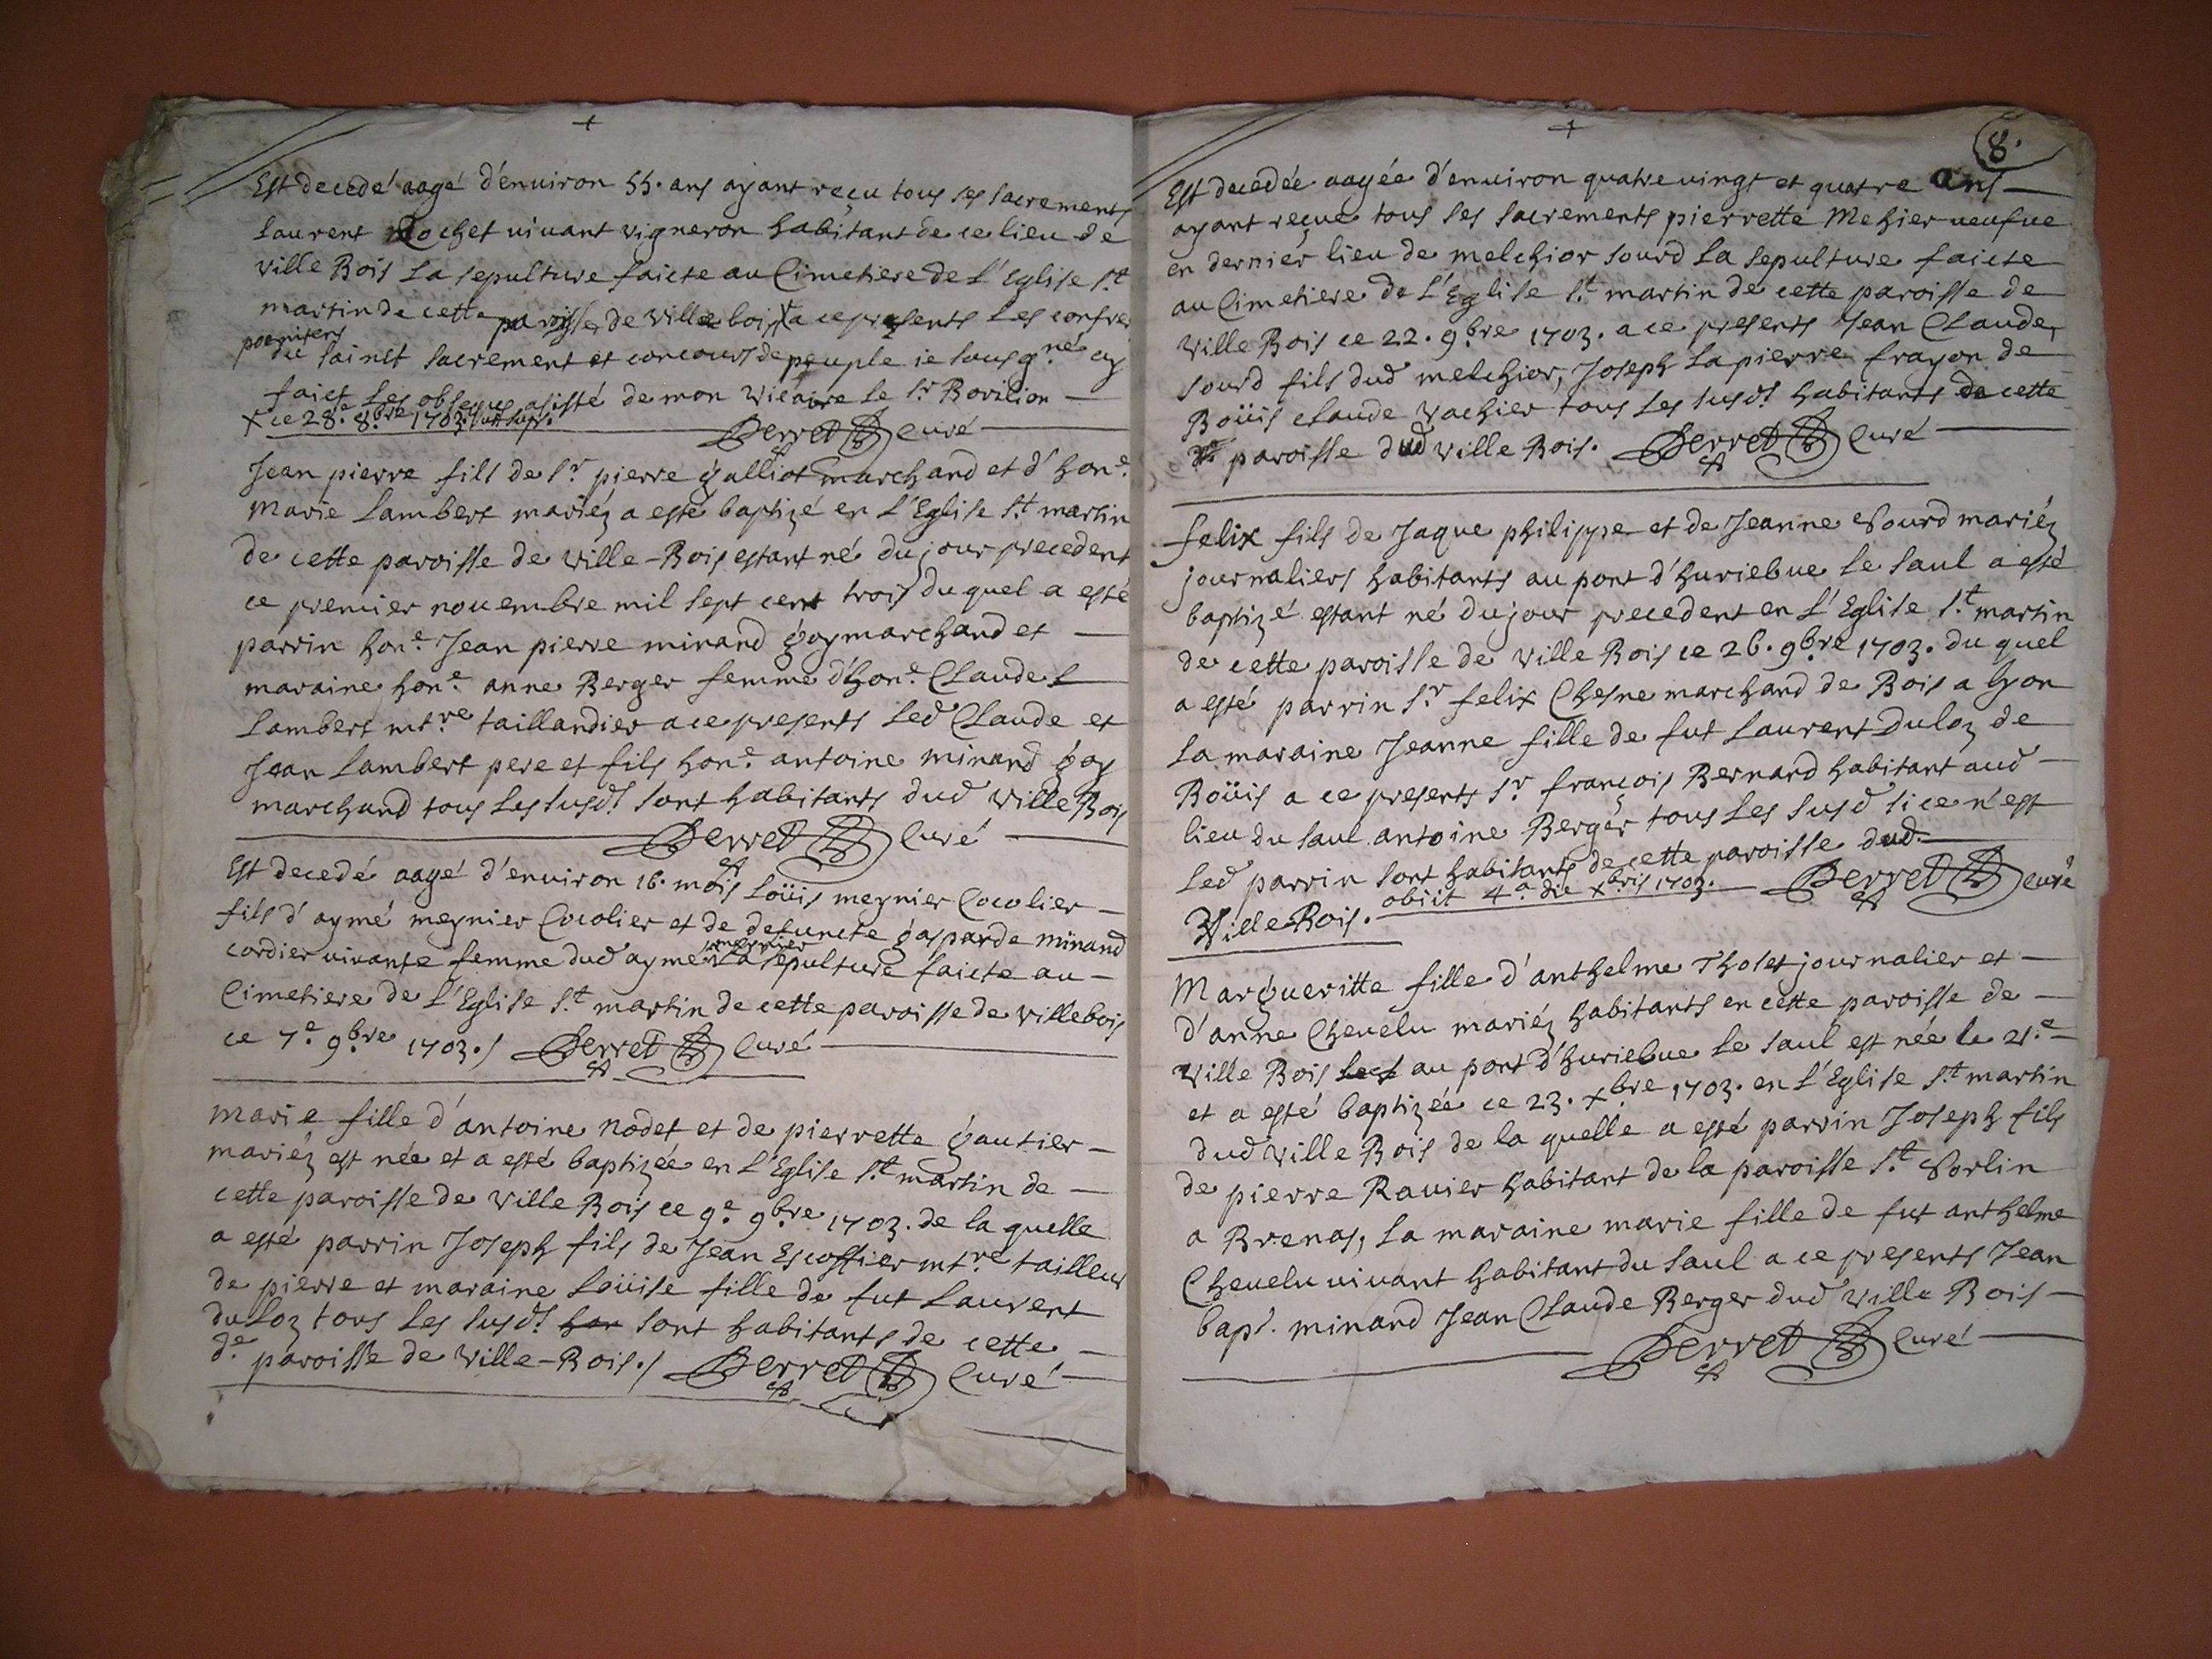 +
Est decedé aagé d'enuiron 55. ans ayant reçu tous ses sacrements
Laurent Rochet uiuant vigneron habitant de ce lieu de
ville Bois La sepulture faicte au Cimetiere de L'Eglise s.t
martin de cette paroisse de villebois x a ce presents Les confreres
poenitens
du sainct sacrement et concours de peuple ie sousg.né ay
faict Les obseques asisté de mon vicaire le s.r Borilion —
x ce 28.e 8.bre 1703. ut sup.
Perret Curé
Jean pierre fils de s.r pierre galliot marchand et d'hon.e
Marie Lambert mariéz a esté baptizé en L'Eglise s.t martin
de cette paroisse de ville-Bois estant né du jour precedent
ce premier nouembre mil sept cent trois du quel a esté
parrin hon.e Jean pierre minand goy marchand et —
maraine hon.e anne Berger femme d'hon.e Claude L
Lambert mt.re taillandier a ce presents Led Claude et
Jean Lambert pere et fils hon.e antoine minand goy
marchand tous Les susd.s sont habitants dud ville Bois
Perret Curé
Est decedé aagé d'enuiron 16. mois Loüis meynier Cocolier —
fils d'aymé meynier Cocolier et de defuncte gasparde minand
meynier
cordier uiuante femme dud aymé La sepulture faicte au —
Cimetiere de L'Eglise s.t martin de cette paroisse de villebois
ce 7.e 9.bre 1703./ Perret Curé
Marie fille d'antoine nodet et de pierrette gautier —
mariéz est née et a esté baptizée en L'Eglise s.t martin de —
cette paroisse de ville Bois ce 9.e 9.bre 1703. de la quelle
a esté parrin Joseph fils de Jean Escoffier mt.re tailleur
de pierre et maraine Loüise fille de fut Laurent
duLoz tous Les susd.s sont habitants de cette —
d.e paroisse de ville-Bois./ Perret Curé
+
8.
Est decedée aagée d'enuiron quatre uingt et quatre ans —
ayant reçue tous ses sacrements pierrette Mehier ueufue
en dernier lieu de melchior sourd La sepulture faicte
au Cimetiere de L'Eglise s.t martin de cette paroisse de
ville Bois ce 22. 9.bre 1703. a ce presents Jean Claude,
sourd fils dud melchior, Joseph Lapierre frayon de
Boüis claude vachier tous Les susd.s habitants de cette
d.e paroisse dud ville Bois. Perret Curé
felix fils de Jaque philippe et de Jeanne sourd mariéz
journaliers habitants au pont d'huriebue Le saul a esté
baptizé estant né du jour precedent en L'Eglise s.t martin
de cette paroisse de ville Bois ce 26. 9.bre 1703. du quel
a esté parrin s.r felix Chesne marchand de Bois a Lyon
La maraine Jeanne fille de fut Laurent Duloz de
Boüis a ce presents s.r françois Bernard habitant aud —
lieu du saul antoine Berger tous Les susd si ce n'est
Led parrin sont habitants de cette paroisse dud.
Ville Bois. obiit 4.a die x.bris 1703. Perret Curé
Margueritte fille d'anthelme Tholet journalier et —
d'anne Cheuelu mariéz habitants en cette paroisse de —
ville Bois au pont d'huriebue Le saul est née le 21.e —
et a esté baptizée ce 23. x.bre 1703. en L'Eglise s.t martin
dud ville Bois de la quelle a esté parrin Joseph fils
de pierre Rauier habitant de la paroisse s.t sorlin
a Brenas, La maraine marie fille de fut anthelme
Cheuelu uiuant habitant du saul a ce presents Jean
bapt. minand Jean Claude Berger dud ville Bois —
Perret Curé